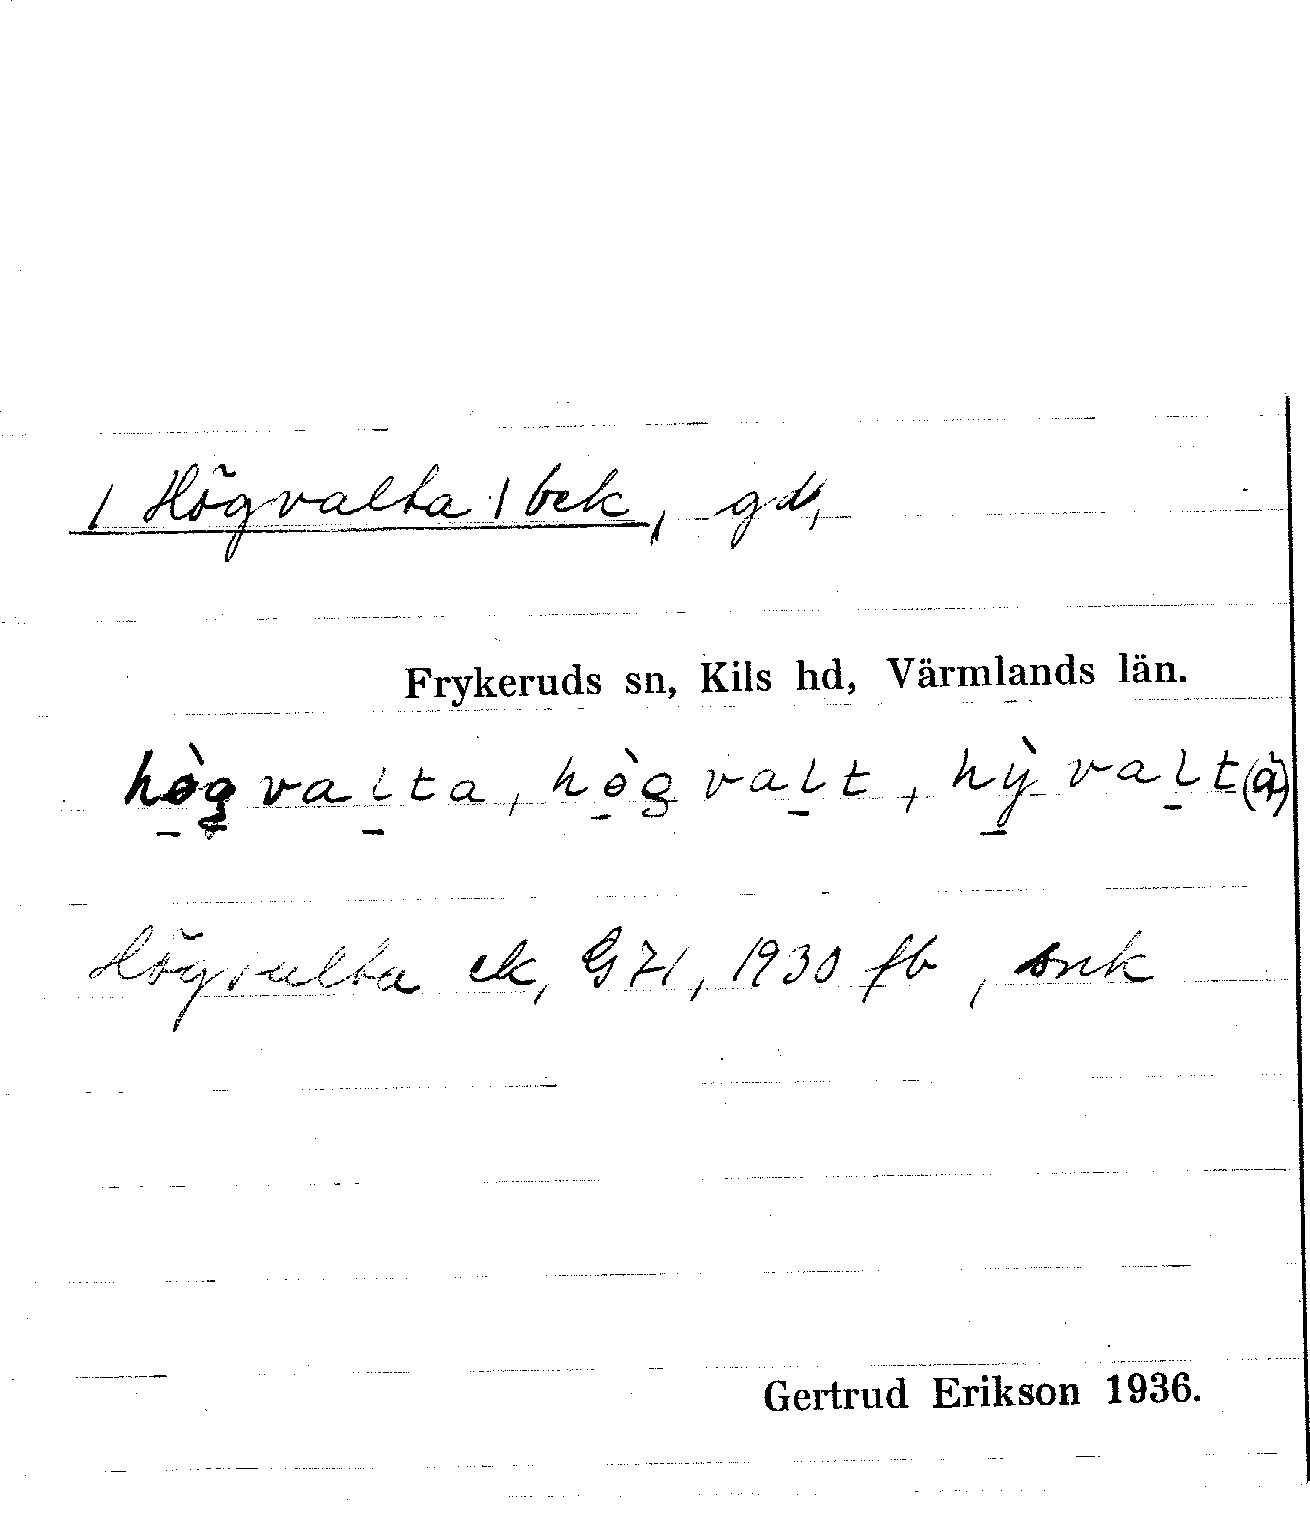 / Högvalta / bek, gd,
Frykeruds sn, Kils hd, Värmlands län.
hògvalta, hògvalt, hỳvalt(a)
Högvalta ek, G 71, 1930 fb, snk
Gertrud Erikson 1936.